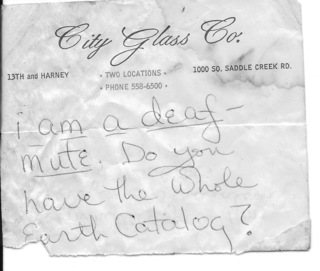 City Glass Co.
13TH and HARNEY
• TWO LOCATIONS •
1000 SO. SADDLE CREEK RD.
• PHONE 558-6500 •
i am a deaf-
mute. Do you
have the Whole
Earth Catalog?